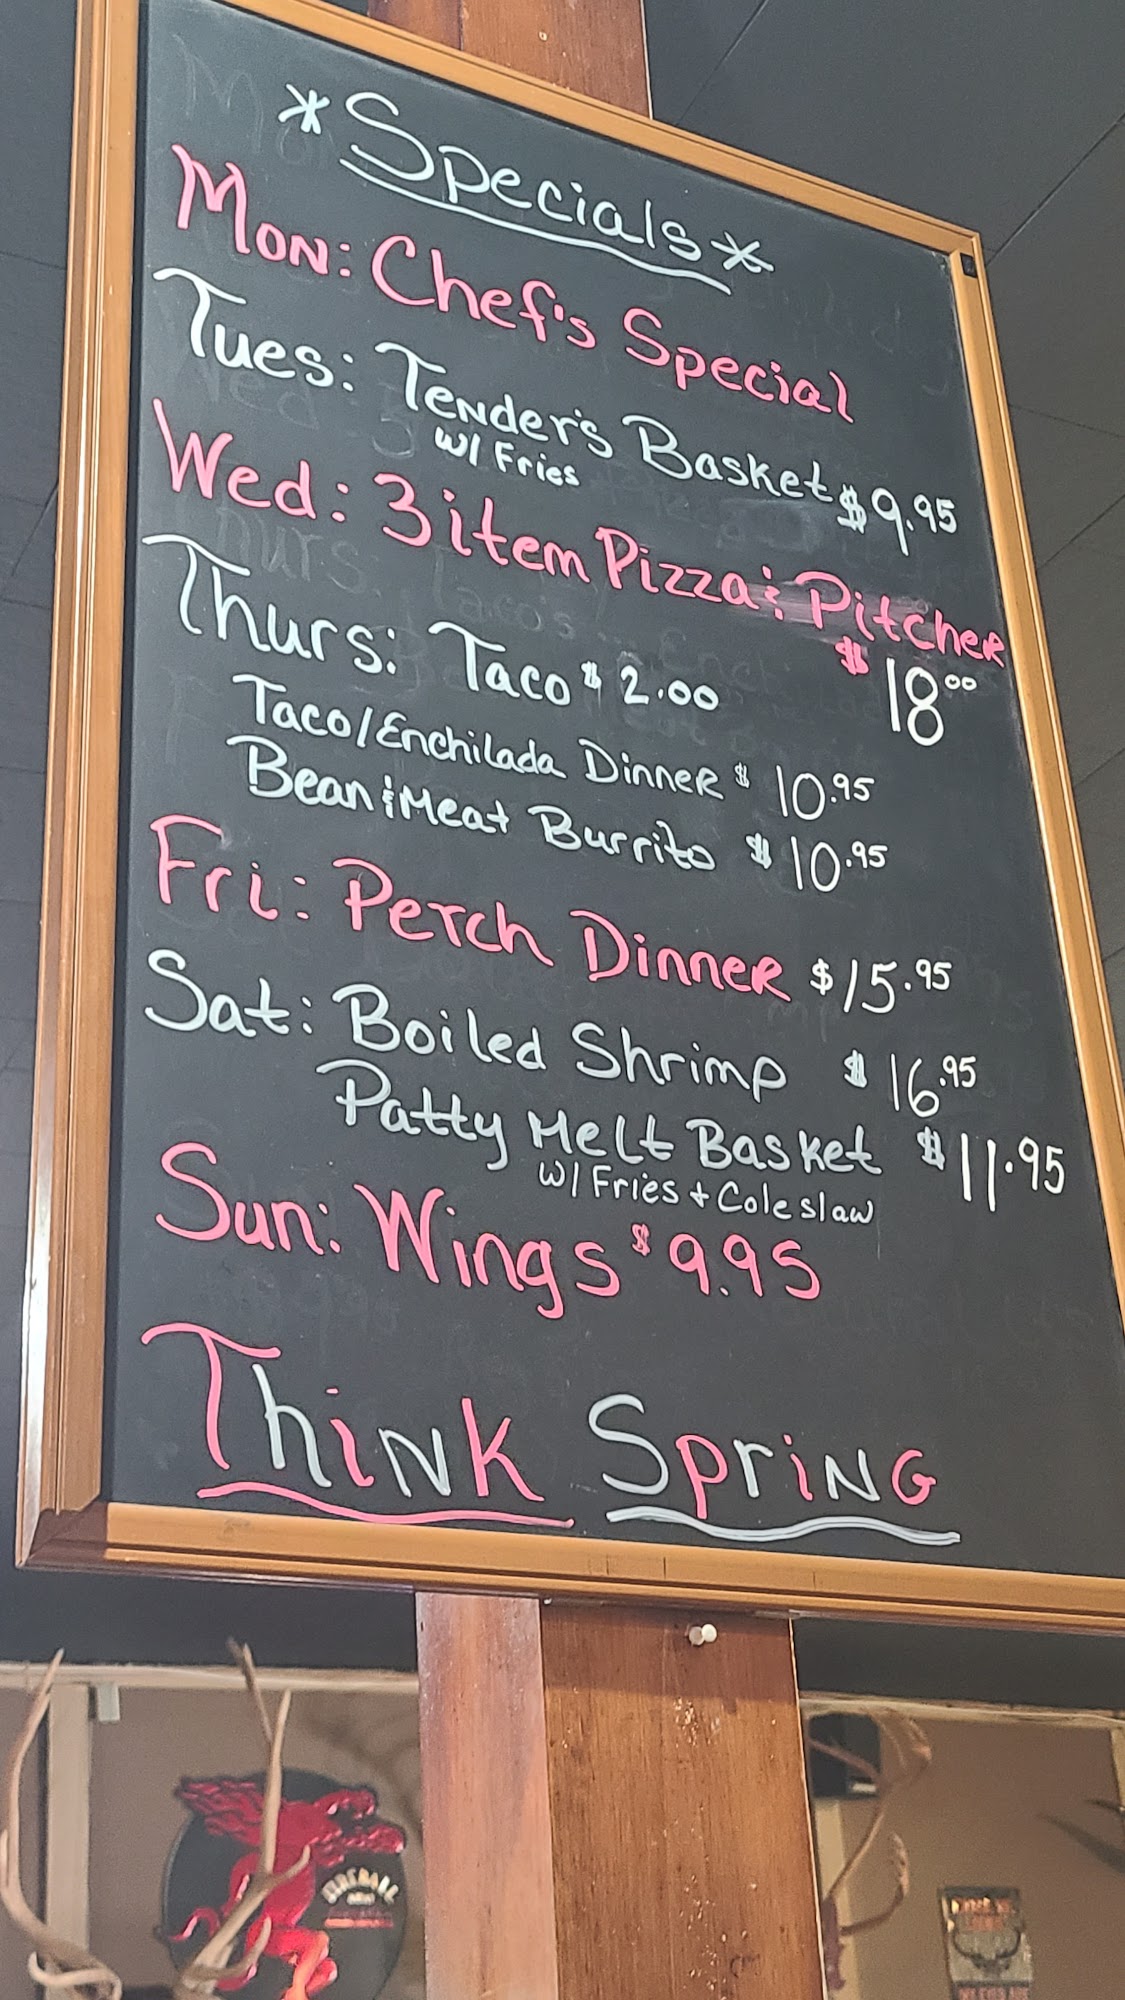 *Specials*
Mon: Chef's Special
Tues: Tender's Basket $9.95
w/ Fries
Wed: 3 item Pizza & Pitcher
$18.00
Thurs: Taco $2.00
Taco/Enchilada Dinner $10.95
Bean & Meat Burrito $10.95
Fri: Perch Dinner $15.95
Sat: Boiled Shrimp $16.95
Patty Melt Basket $11.95
w/ Fries + Coleslaw
Sun: Wings $9.95
Think Spring
FIREBALL